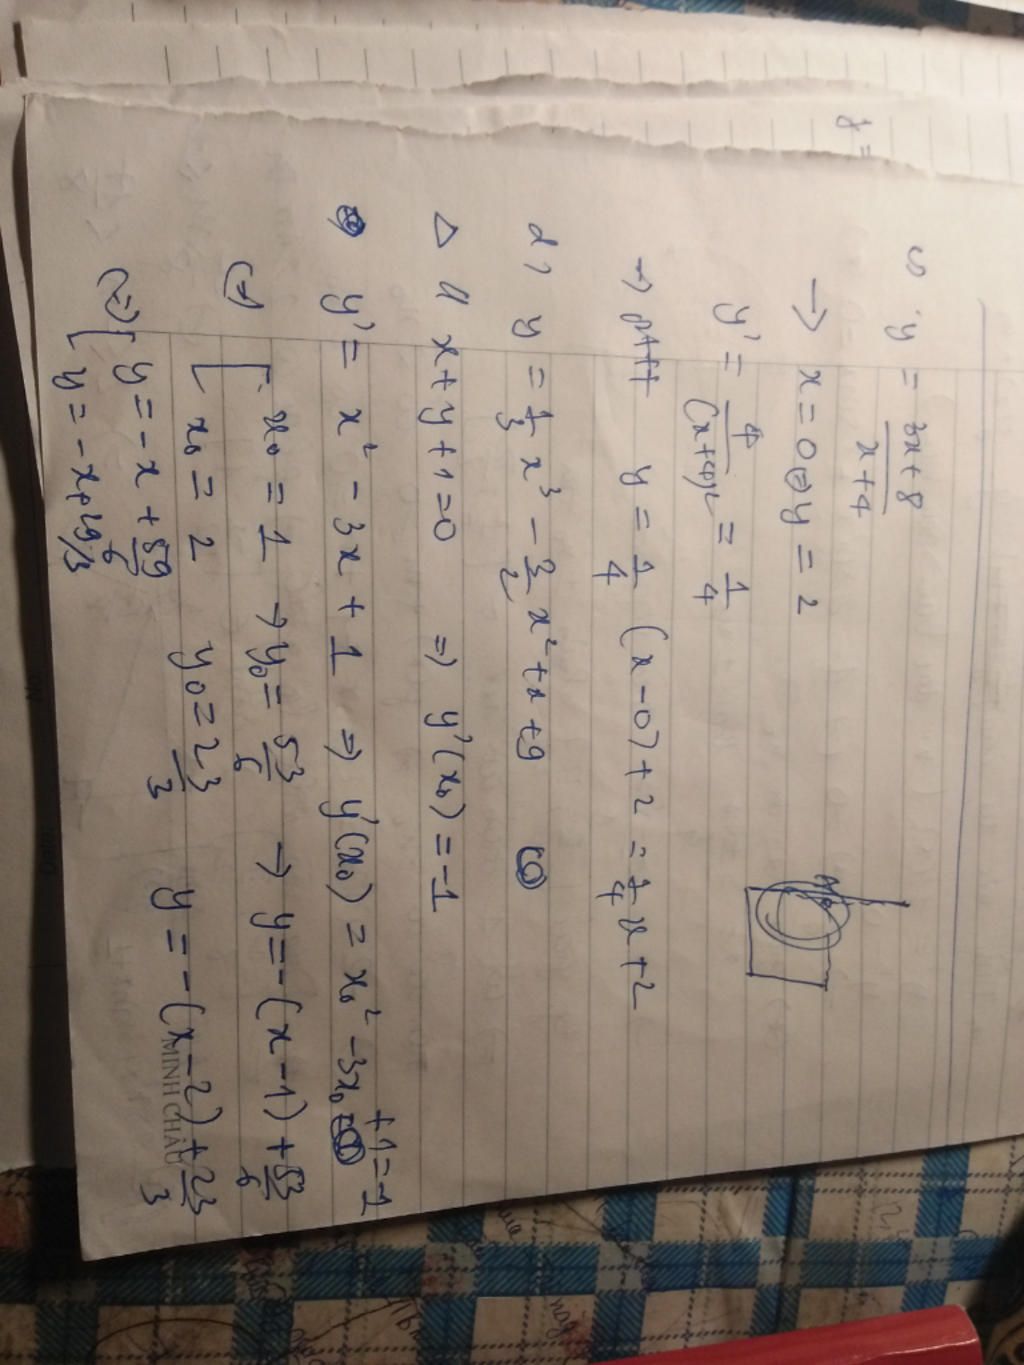 c) y = 3x+8 / x+4
→ x = 0 ⇔ y = 2
y' = 4/(x+4)² = 1/4
→ pttt y = 1/4 (x-0) + 2 = 1/4 x + 2
d) y = 1/3 x³ - 3/2 x² + x + 9
Δ // x + y + 1 = 0 ⇒ y'(x₀) = -1
y' = x² - 3x + 1 ⇒ y'(x₀) = x₀² - 3x₀ + 1 = -1
(⇒) [ x₀ = 1 → y₀ = 53/6 → y = -(x-1) + 53/6
x₀ = 2 y₀ = 23/3 y = -(x-2) + 23/3
(⇒) [ y = -x + 59/6
y = -x + 29/3
MINH CHÂU
y =